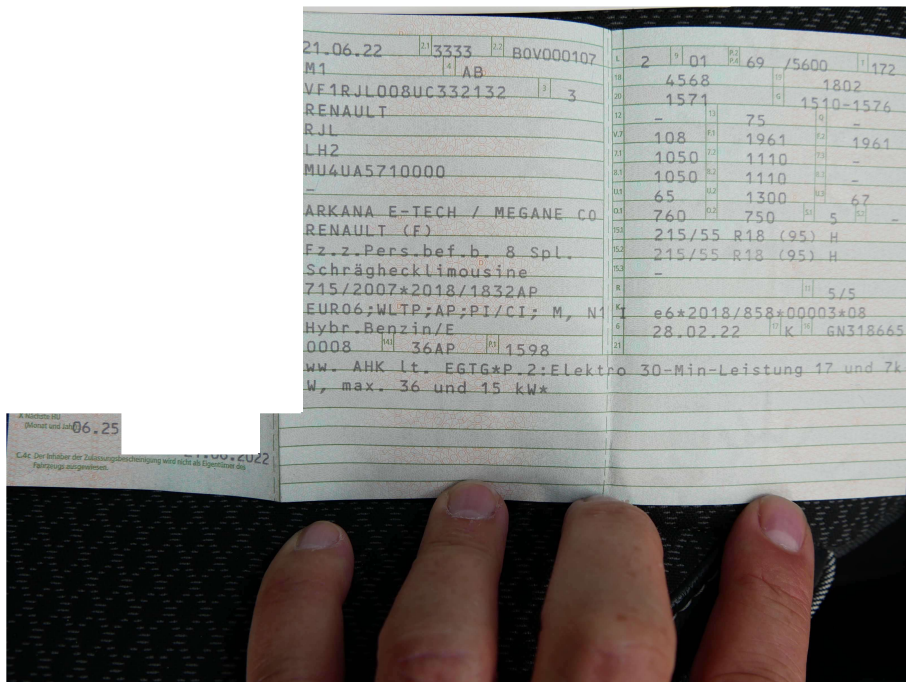 21.06.22 2.1 3333 2.2 B0V000107
M1 4 AB
VF1RJL008UC332132 3 3
RENAULT
RJL
LH2
MU4UA5710000
–
ARKANA E-TECH / MEGANE CO
RENAULT (F)
Fz.z.Pers.bef.b. 8 Spl.
Schräghecklimousine
715/2007*2018/1832AP
EURO6;WLTP;AP;PI/CI; M, N1 I
Hybr.Benzin/E
0008 14.1 36AP P.1 1598
L 2 9 01 P.2 P.4 69 /5600 T 172
18 4568 19 1802
20 1571 G 1510-1576
12 – 13 75 Q –
V.7 108 F.1 1961 F.2 1961
7.1 1050 7.2 1110 7.3 –
8.1 1050 8.2 1110 8.3 –
U.1 65 U.2 1300 U.3 67
O.1 760 O.2 750 S.1 5 S.2 –
15.1 215/55 R18 (95) H
15.2 215/55 R18 (95) H
15.3 –
R 11 5/5
K e6*2018/858*00003*08
6 28.02.22 17 K 16 GN318665
21
ww. AHK lt. EGTG*P.2:Elektro 30-Min-Leistung 17 und 7k
W, max. 36 und 15 kW*
Nächste HU
(Monat und Jahr) 06.25
2022
C.4c Der Inhaber der Zulassungsbescheinigung wird nicht als Eigentümer des
Fahrzeugs ausgewiesen.